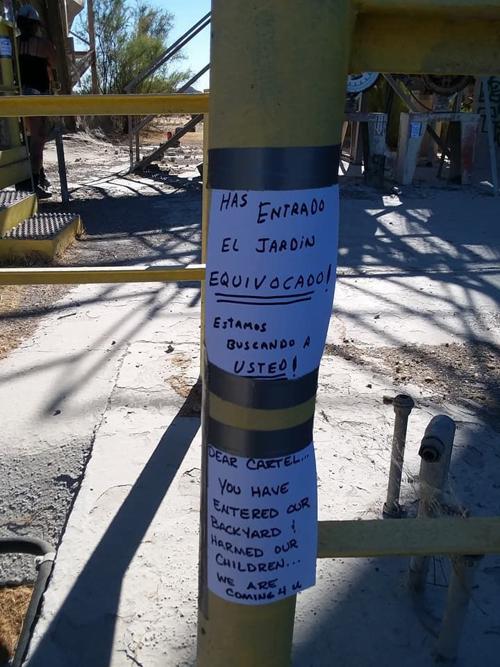 HAS ENTRADO
EL JARDIN
EQUIVOCADO!
ESTAMOS
BUSCANDO A
USTED!
DEAR CARTEL...
YOU HAVE
ENTERED OUR
BACKYARD &
HARMED OUR
CHILDREN...
WE ARE
COMING 4 U